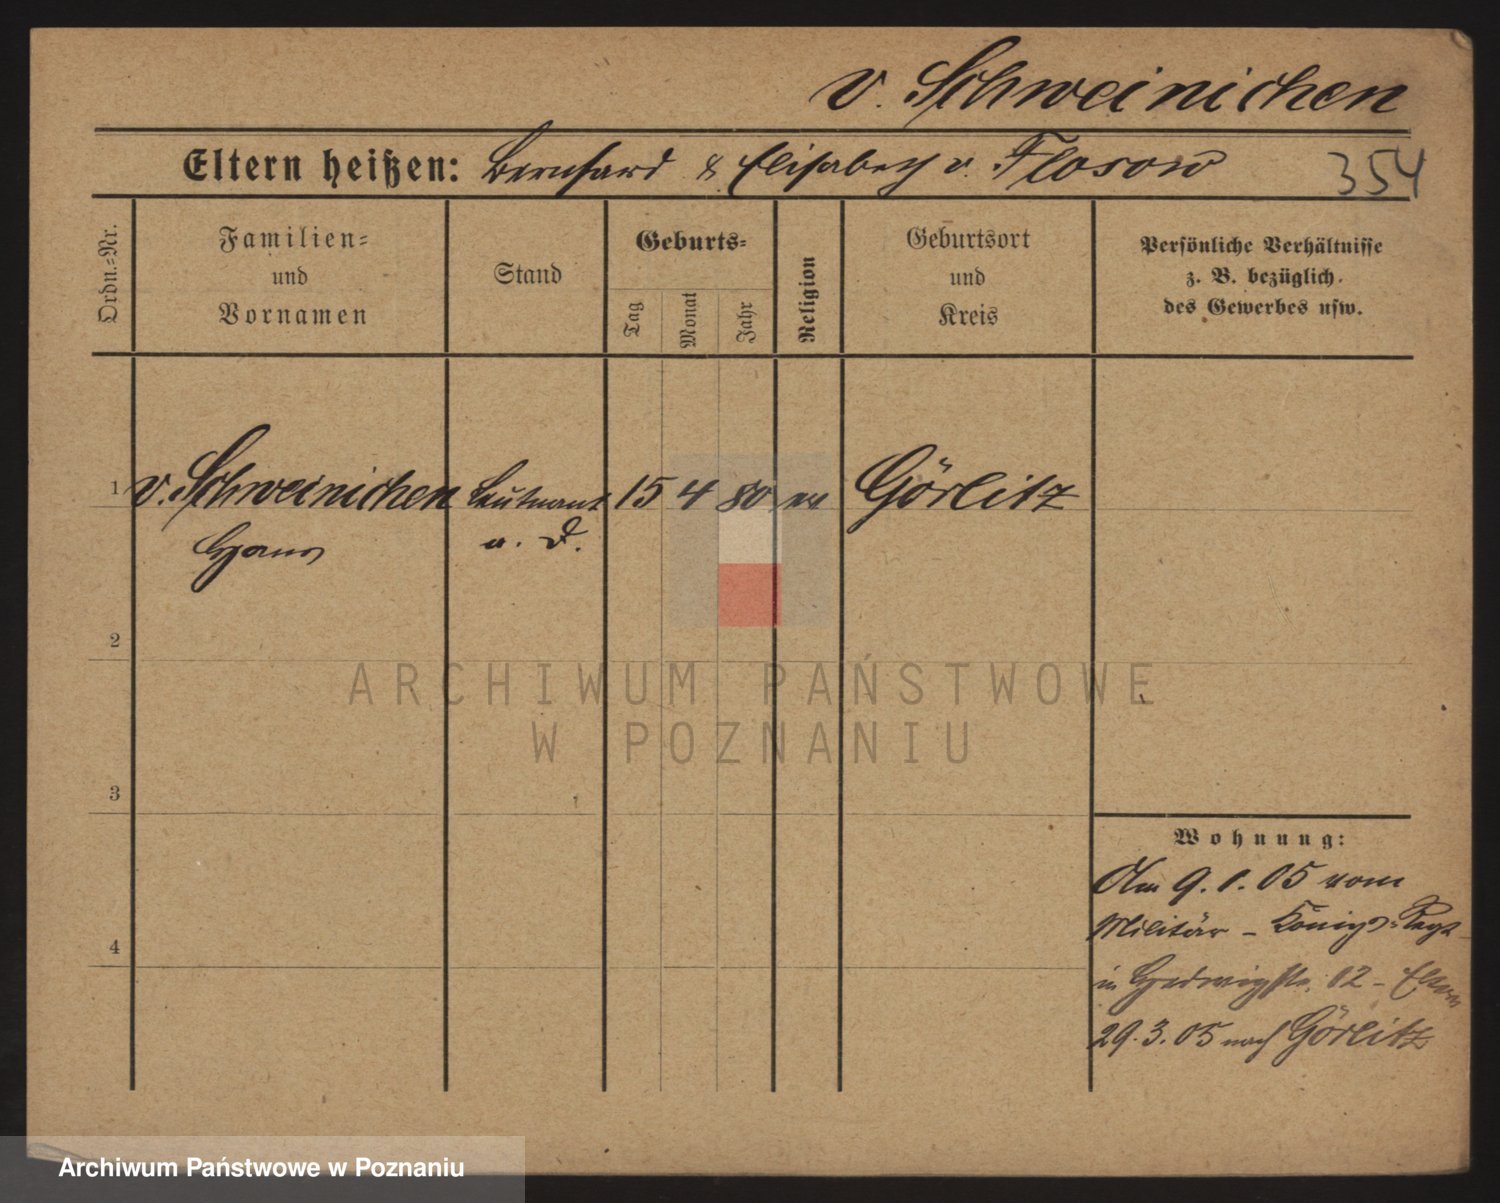 v. Schweinichen
Eltern heißen: Bernhard & Elisabeth v. Flotow
354
Ordn.-Nr.
Familien-
und
Vornamen
Stand
Geburts-
Tag
Monat
Jahr
Religion
Geburtsort
und
Kreis
Persönliche Verhältnisse
z. B. bezüglich
des Gewerbes usw.
1 v. Schweinichen Leutnant 15 4 80 ev Görlitz
Hans a. D.
2
3
4
Wohnung:
Am 9. 1. 05 vom
Militär - Königs-Regt
in Hedwigstr. 12 - Eltern
29.3.05 nach Görlitz
ARCHIWUM PAŃSTWOWE
W POZNANIU
Archiwum Państwowe w Poznaniu